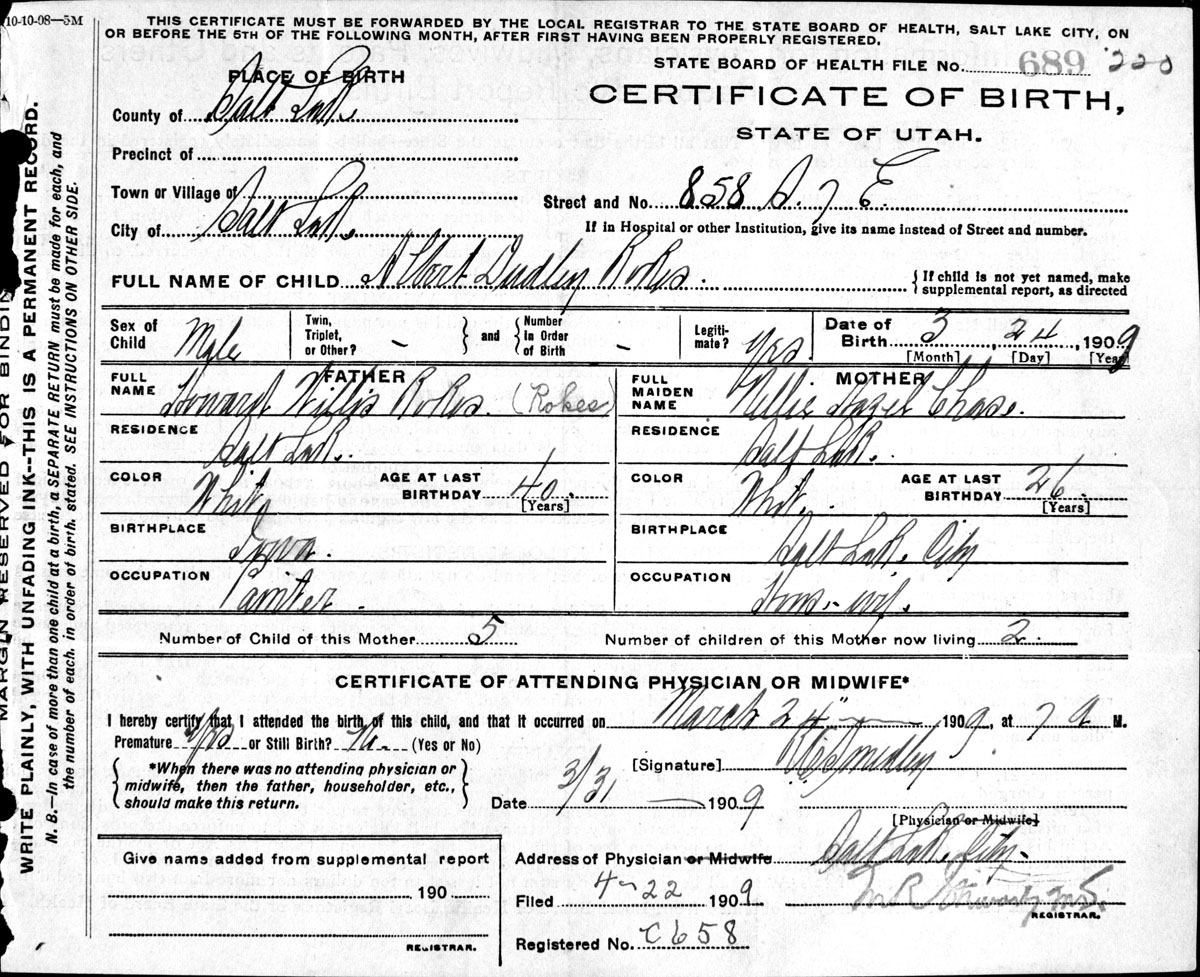 10-10-08—5M
THIS CERTIFICATE MUST BE FORWARDED BY THE LOCAL REGISTRAR TO THE STATE BOARD OF HEALTH, SALT LAKE CITY, ON
OR BEFORE THE 5TH OF THE FOLLOWING MONTH, AFTER FIRST HAVING BEEN PROPERLY REGISTERED.
STATE BOARD OF HEALTH FILE No. 689 220
PLACE OF BIRTH
CERTIFICATE OF BIRTH,
STATE OF UTAH.
County of Salt Lake
Precinct of
Town or Village of
Street and No. 858 S. 7 E
City of Salt Lake
If in Hospital or other Institution, give its name instead of Street and number.
FULL NAME OF CHILD Albert Dudley Rokes
{ If child is not yet named, make
supplemental report, as directed
Sex of Child Male
Twin, Triplet, or Other? -
} and {
Number In Order of Birth -
Legiti- mate? Yes.
Date of Birth 3, 24, 1909
[Month] [Day] [Year]
FATHER
FULL NAME Howard Willis Rokes. (Rokes)
RESIDENCE Salt Lake.
COLOR White
AGE AT LAST BIRTHDAY 40.
[Years]
BIRTHPLACE Iowa.
OCCUPATION Painter.
MOTHER
FULL MAIDEN NAME Nellie Hazel Chase.
RESIDENCE Salt Lake.
COLOR White.
AGE AT LAST BIRTHDAY 26.
[Years]
BIRTHPLACE Salt Lake City
OCCUPATION House-wife.
Number of Child of this Mother 5
Number of children of this Mother now living 2.
CERTIFICATE OF ATTENDING PHYSICIAN OR MIDWIFE*
I hereby certify that I attended the birth of this child, and that it occurred on March 24" 1909, at 7 a M.
Premature Yes or Still Birth? No. (Yes or No)
{ *When there was no attending physician or
midwife, then the father, householder, etc.,
should make this return. }
[Signature] Smedley
Date 3/31 — 1909
[Physician or Midwife]
Give name added from supplemental report
190
REGISTRAR.
Address of Physician or Midwife Salt Lake City.
Filed 4-22 1909
M.D.
REGISTRAR.
Registered No. C658
MARGIN RESERVED FOR BINDIN
WRITE PLAINLY, WITH UNFADING INK--THIS IS A PERMANENT RECORD.
N. B.—In case of more than one child at a birth, a SEPARATE RETURN must be made for each, and
the number of each, in order of birth, stated. SEE INSTRUCTIONS ON OTHER SIDE.